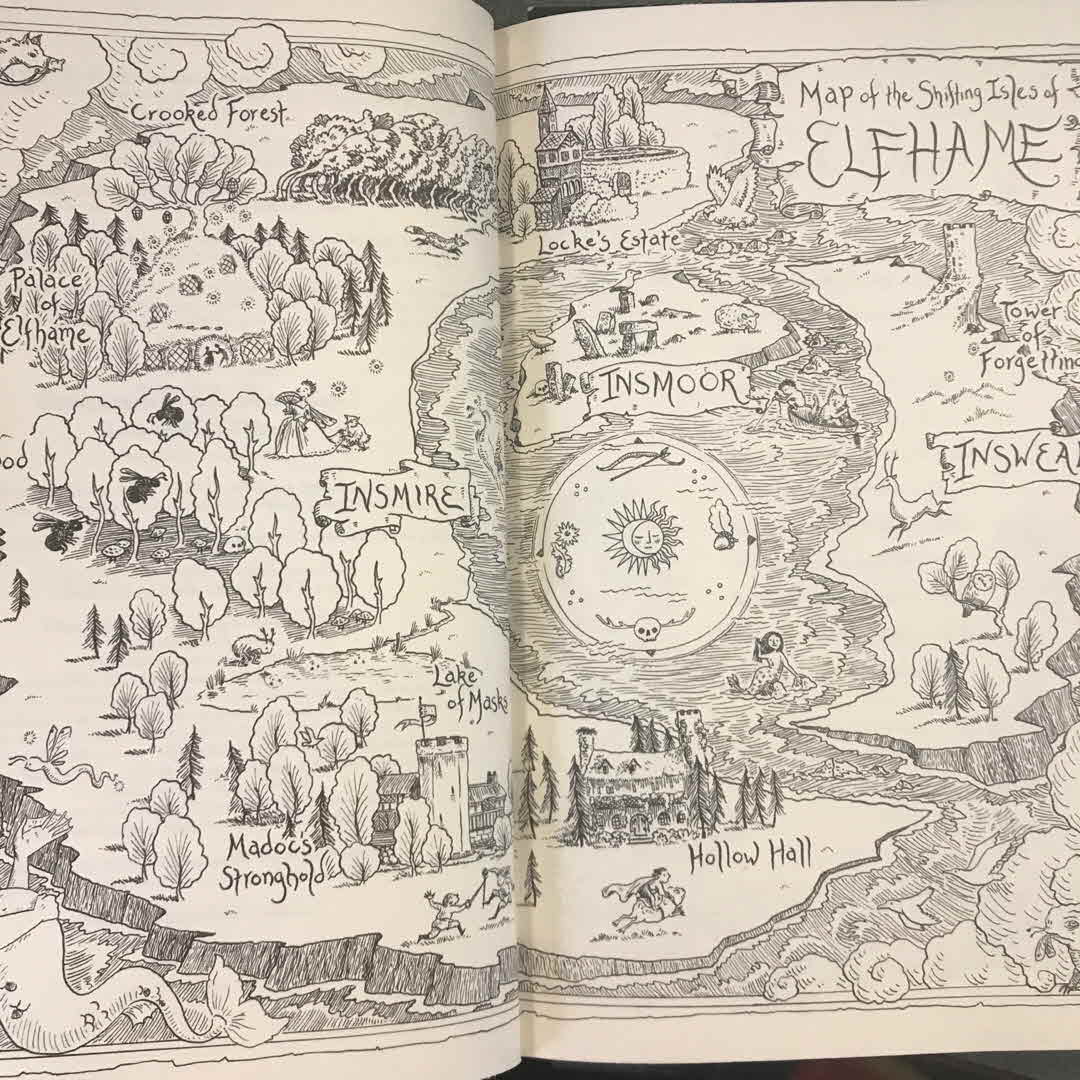 Map of the Shifting Isles of
ELFHAME
Crooked Forest
Locke's Estate
Palace
of
Elfhame
Tower
of
INSMOOR
INSMIRE
Lake
of Masks
Madoc's
Stronghold
Hollow Hall